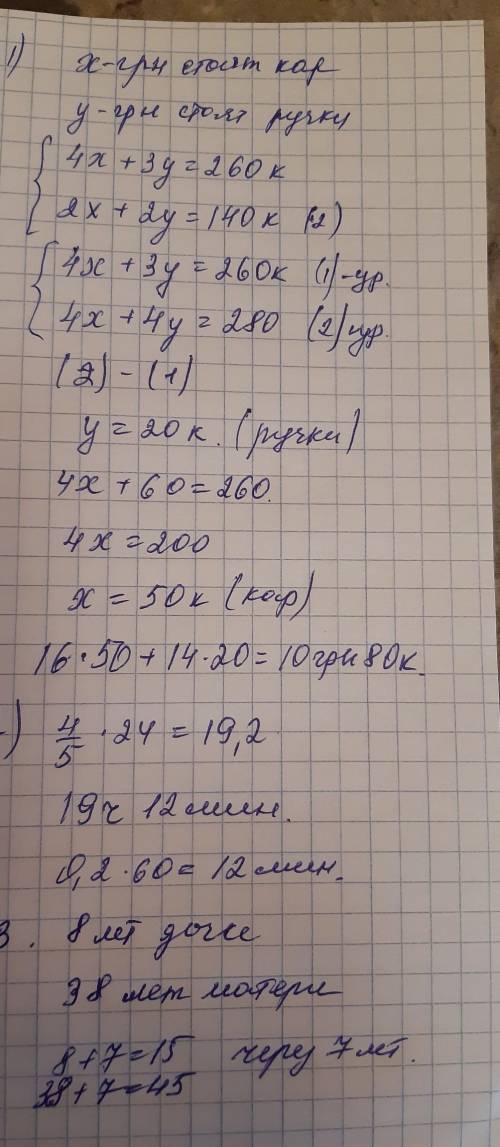 1) х-грн стоят кар
у-грн стоят ручки
4х + 3у = 260к
2х + 2у = 140к (2)
4х + 3у = 260к (1)-ур.
4х + 4у = 280 (2) ур.
(2) - (1)
у = 20к. (ручки)
4х + 60 = 260.
4х = 200
х = 50к (кар)
16·50 + 14·20 = 10грн 80к.
) 4/5 · 24 = 19,2
19ч 12мин.
0,2·60 = 12мин.
3. 8 лет дочке
38 лет матери
8+7=15 через 7 лет.
38+7=45